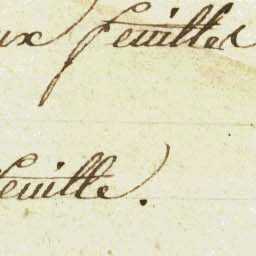 ux feuilles
feuille.